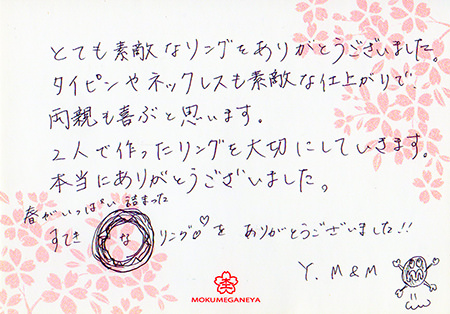 とても素敵なリングをありがとうございました。
タイピンやネックレスも素敵な仕上がりで、
両親も喜ぶと思います。
2人で作ったリングを大切にしていきます。
本当にありがとうございました。
春がいっぱい詰まった
すてきなリング♡を ありがとうございました!!
Y. M & M
MOKUMEGANEYA